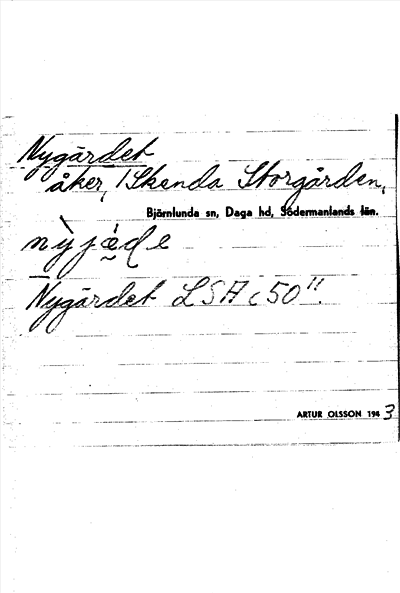 Nygärdet
åker, / Skenda Storgården,
Björnlunda sn, Daga hd, Södermanlands län.
Nygärdet LSA c 50¹¹.
ARTUR OLSSON 1943